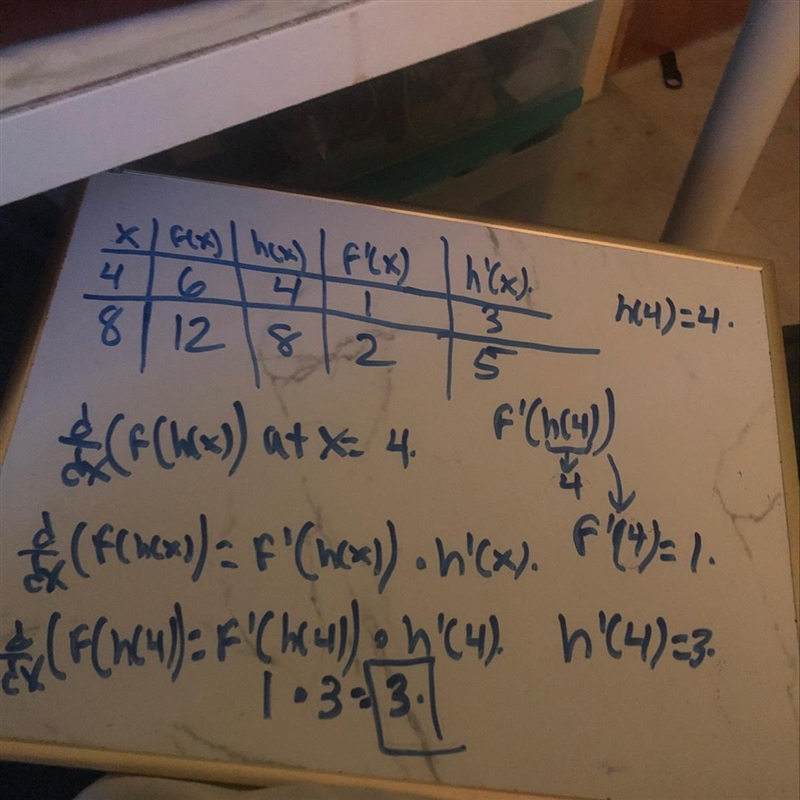 x f(x) h(x) F'(x) h'(x).
4 6 4 1 3
8 12 8 2 5
h(4)=4.
d/dx (F(h(x)) at x= 4.
F'(h(4))
4
d/dx (F(h(x))= F'(h(x)) · h'(x).
F'(4)=1.
d/dx (F(h(4))= F'(h(4)) · h'(4).
h'(4)=3.
1 · 3 = 3.